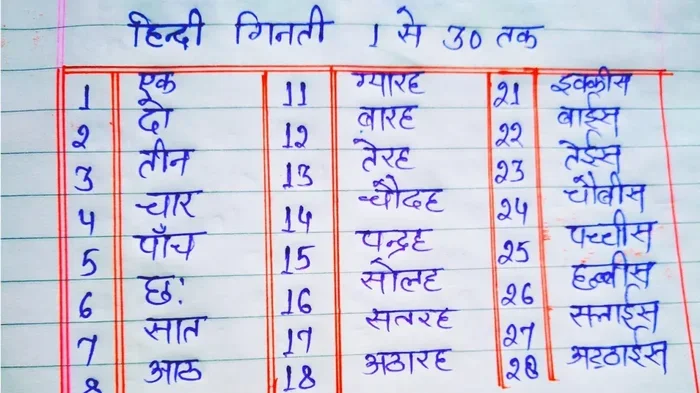 हिन्दी गिनती 1 से 30 तक
1 एक 11 ग्यारह 21 इक्कीस
2 दो 12 बारह 22 बाईस
3 तीन 13 तेरह 23 तेईस
4 चार 14 चौदह 24 चौबीस
5 पाँच 15 पन्द्रह 25 पच्चीस
6 छः 16 सोलह 26 छब्बीस
7 सात 17 सतरह 27 सत्ताईस
8 आठ 18 अठारह 28 अट्ठाईस